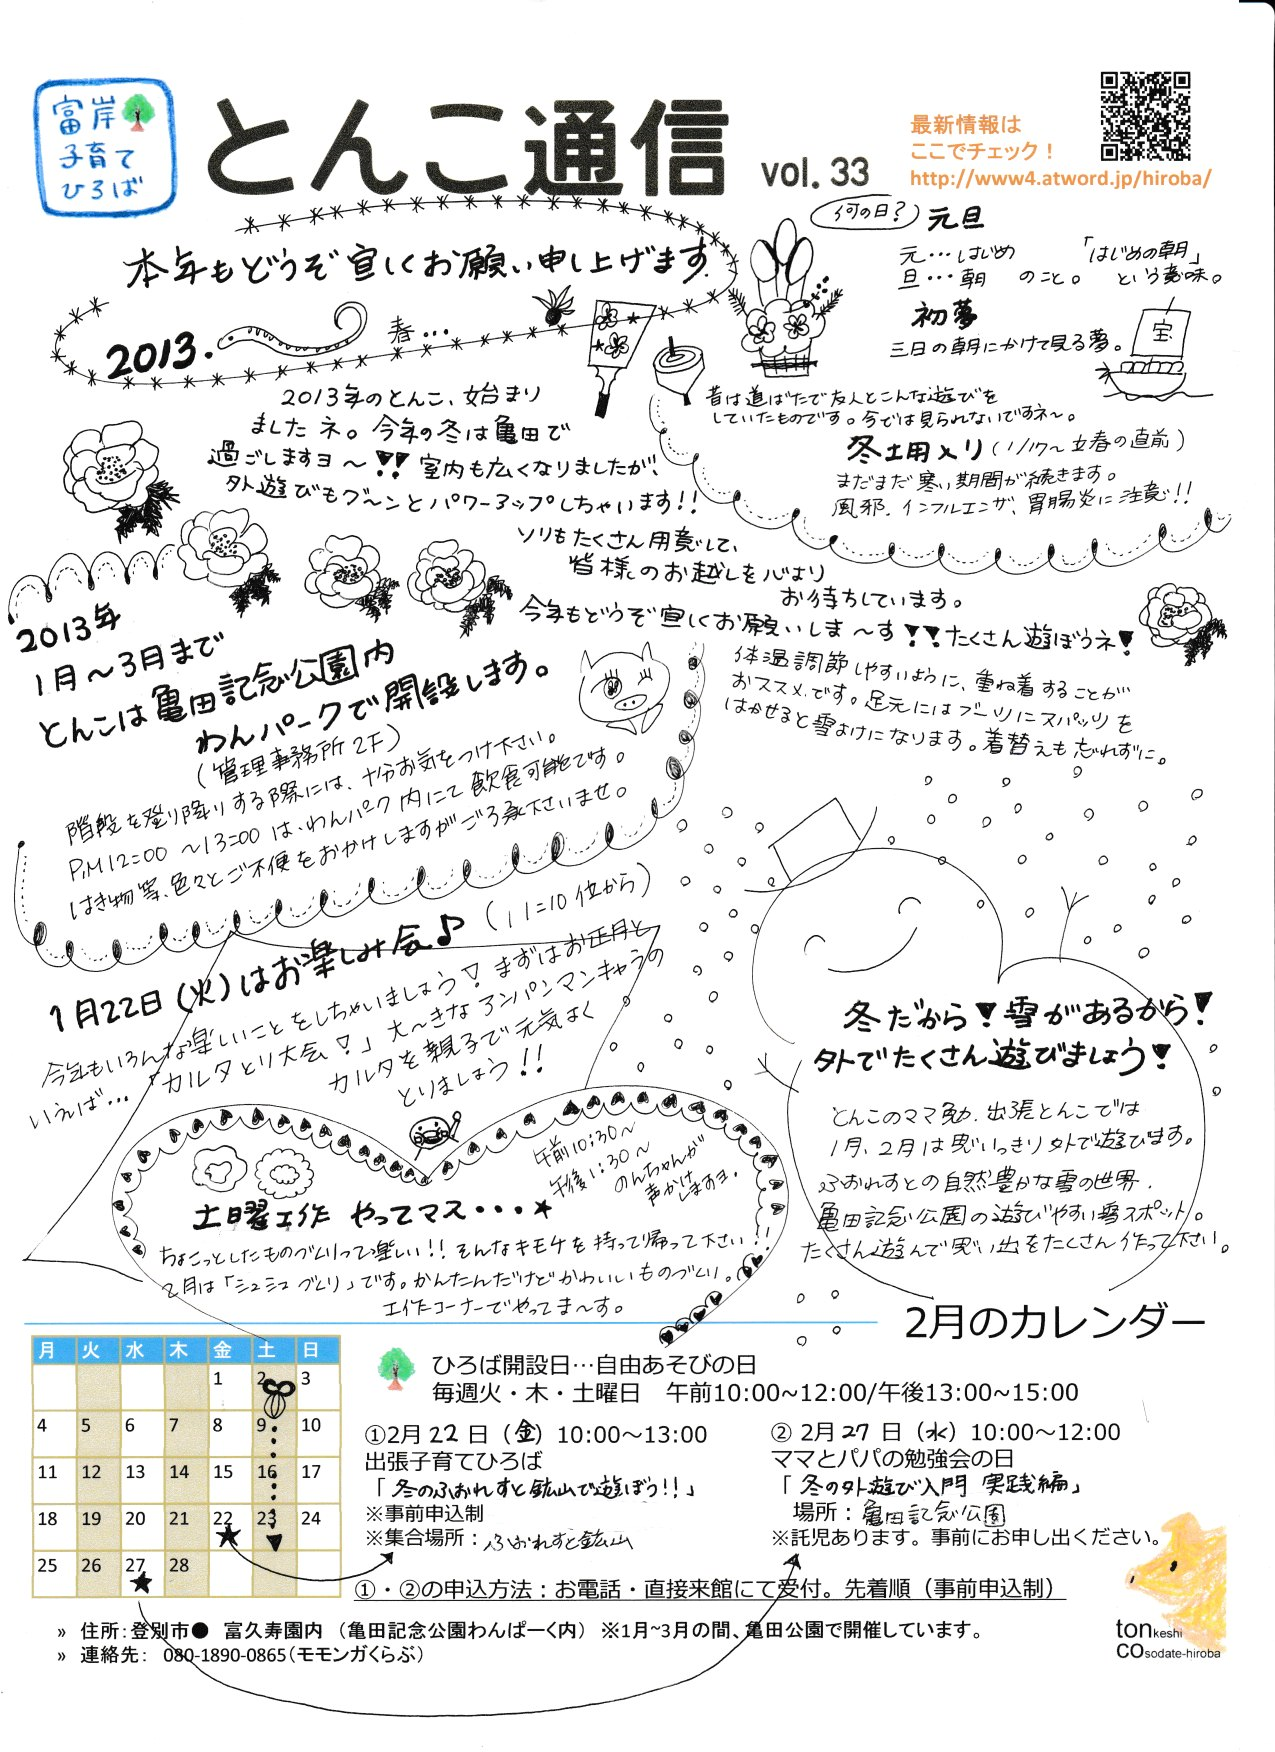 富岸
子育て
ひろば
とんこ通信 vol. 33
最新情報は
ここでチェック！
http://www4.atword.jp/hiroba/
本年もどうぞ宜しくお願い申し上げます。
2013. 春…
何の日？ 元旦
元…はじめ
旦…朝 のこと。
「はじめの朝」
という意味。
初夢
三日の朝にかけて見る夢。
宝
昔は道ばたで友人とこんな遊びを
していたものです。今では見られないですネ〜。
冬土用入り（1/17〜立春の直前）
まだまだ寒い期間が続きます。
風邪．インフルエンザ、胃腸炎に注意!!
2013年のとんこ、始まり
ましたネ。今年の冬は亀田で
過ごしますヨ〜!! 室内も広くなりましたが、
外遊びもグ〜ンとパワーアップしちゃいます!!
ソリもたくさん用意して、
皆様のお越しを心より
お待ちしています。
今年もどうぞ宜しくお願いしま〜す!!たくさん遊ぼうネ!
体温調節しやすいように、重ね着することが
おススメです。足元にはブーツにスパッツを
はかせると雪よけになります。着替えも忘れずに。
2013年
1月〜3月まで
とんこは亀田記念公園内
わんパークで開設します。
（管理事務所2F）
階段を登り降りする際には、十分お気をつけ下さい。
P.M12:00〜13:00は、わんパーク内にて飲食可能です。
はき物等、色々とご不便をおかけしますがご了承下さいませ。
1月22日（火）はお楽しみ会♪（11:10位から）
今年もいろんな楽しいことをしちゃいましょう! まずはお正月と
いえば…「カルタとり大会!」大〜きなアンパンマンキャラの
カルタを親子で元気よく
とりましょう!!
冬だから!雪があるから!
外でたくさん遊びましょう!
とんこのママ勉．出張とんこでは
1月、2月は思いっきり外で遊びます。
ふおれすとの自然豊かな雪の世界．
亀田記念公園の遊びやすい雪スポット。
たくさん遊んで思い出をたくさん作って下さい。
午前10:30〜
午後1:30〜
のんちゃんが
声かけ
しますヨ．
土曜工作 やってマス・・・★
ちょこっとしたものづくりって楽しい!! そんなキモチを持って帰って下さい!!
2月は「シュシュづくり」です。かんたんだけどかわいいものづくり。
工作コーナーでやってま〜す。
2月のカレンダー
月 火 水 木 金 土 日
1 2 3
4 5 6 7 8 9 10
11 12 13 14 15 16 17
18 19 20 21 22 23 24
25 26 27 28
ひろば開設日…自由あそびの日
毎週火・木・土曜日　午前10:00~12:00/午後13:00~15:00
①2月 22 日（金）10:00～13:00
出張子育てひろば
「冬のふおれすと鉱山で遊ぼう!!」
※事前申込制
※集合場所：ふおれすと鉱山
② 2月 27 日（水）10:00～12:00
ママとパパの勉強会の日
「冬の外遊び入門 実践編」
場所：亀田記念公園
※託児あります。事前にお申し出ください。
①・②の申込方法：お電話・直接来館にて受付。先着順（事前申込制）
» 住所：登別市● 富久寿園内 （亀田記念公園わんぱーく内） ※1月~3月の間、亀田公園で開催しています。
» 連絡先： 080-1890-0865（モモンガくらぶ）
tonkeshi
COsodate-hiroba